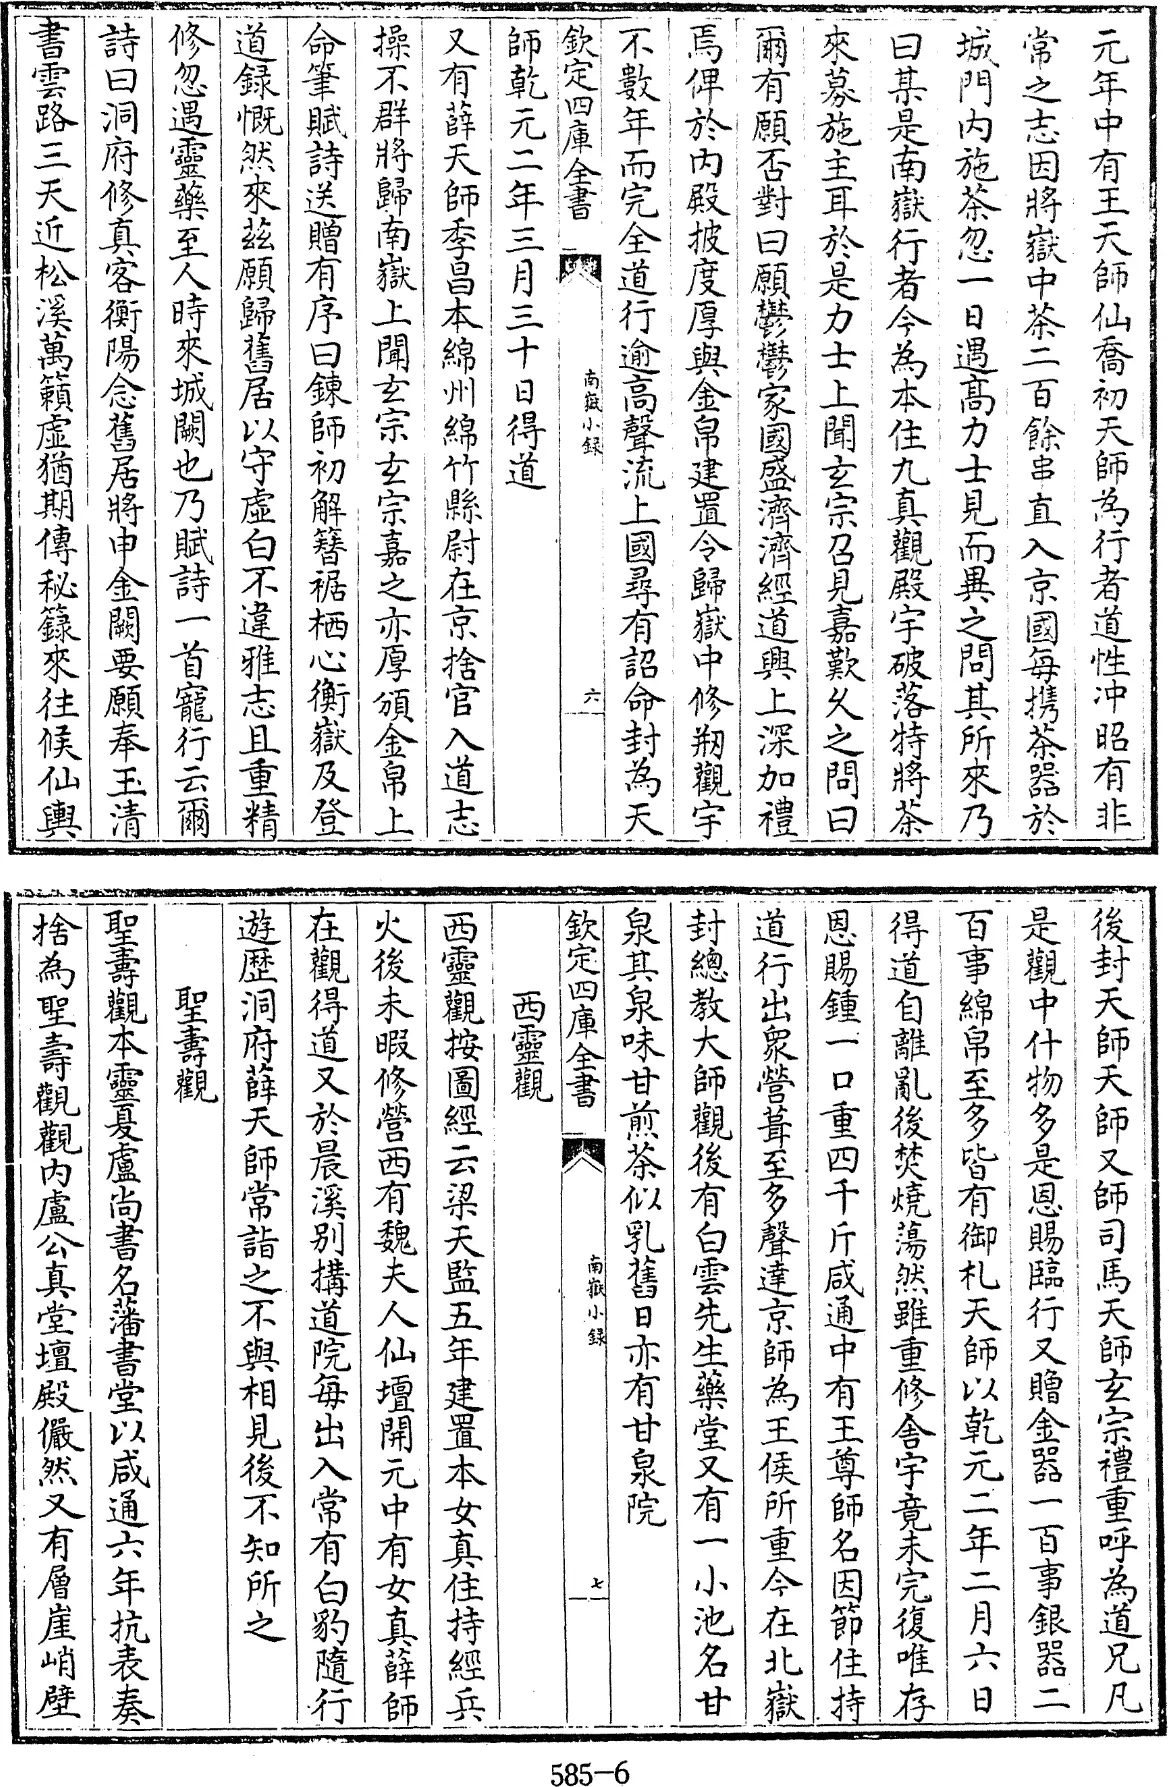 元年中有王天師仙喬初天師為行者道性沖昭有非
常之志因將嶽中茶二百餘串直入京國每攜茶器於
城門内施茶忽一日遇髙力士見而異之問其所來乃
曰某是南嶽行者今為本住九真觀殿宇破落特將茶
來募施主耳於是力士上聞玄宗召見嘉歎乆之問曰
爾有願否對曰願鬱鬱家國盛濟濟經道興上深加禮
焉俾於内殿披度厚與金帛建置令歸嶽中修剏觀宇
不數年而完全道行逾高聲流上國尋有詔命封為天
欽定四庫全書
南嶽小録
六
師乾元二年三月三十日得道
又有薛天師季昌本綿州綿竹縣尉在京捨官入道志
操不群將歸南嶽上聞玄宗玄宗嘉之亦厚頒金帛上
命筆賦詩送贈有序曰鍊師初解簪裾栖心衡嶽及登
道録慨然來茲願歸舊居以守虚白不違雅志且重精
修忽遇靈藥至人時來城闕也乃賦詩一首寵行云爾
詩曰洞府修真客衡陽念舊居將申金闕要願奉玉清
書雲路三天近松溪萬籟虚猶期傳秘籙來往候仙輿
後封天師天師又師司馬天師玄宗禮重呼為道兄凡
是觀中什物多是恩賜臨行又贈金器一百事銀器二
百事綿帛至多皆有御札天師以乾元二年二月六日
得道自離亂後焚燒蕩然雖重修舍宇竟未完復唯存
恩賜鍾一口重四千斤咸通中有王尊師名因節住持
道行出衆營葺至多聲達京師為王侯所重今在北嶽
封總教大師觀後有白雲先生藥堂又有一小池名甘
泉其泉味甘煎茶似乳舊日亦有甘泉院
欽定四庫全書
南嶽小録
七
西靈觀
西靈觀按圖經云梁天監五年建置本女真住持經兵
火後未暇修營西有魏夫人仙壇開元中有女真薛師
在觀得道又於晨溪别搆道院每出入常有白豹隨行
遊歴洞府薛天師常詣之不與相見後不知所之
聖壽觀
聖壽觀本靈夏盧尚書名藩書堂以咸通六年抗表奏
捨為聖壽觀觀内盧公真堂壇殿儼然又有層崖峭壁
585-6